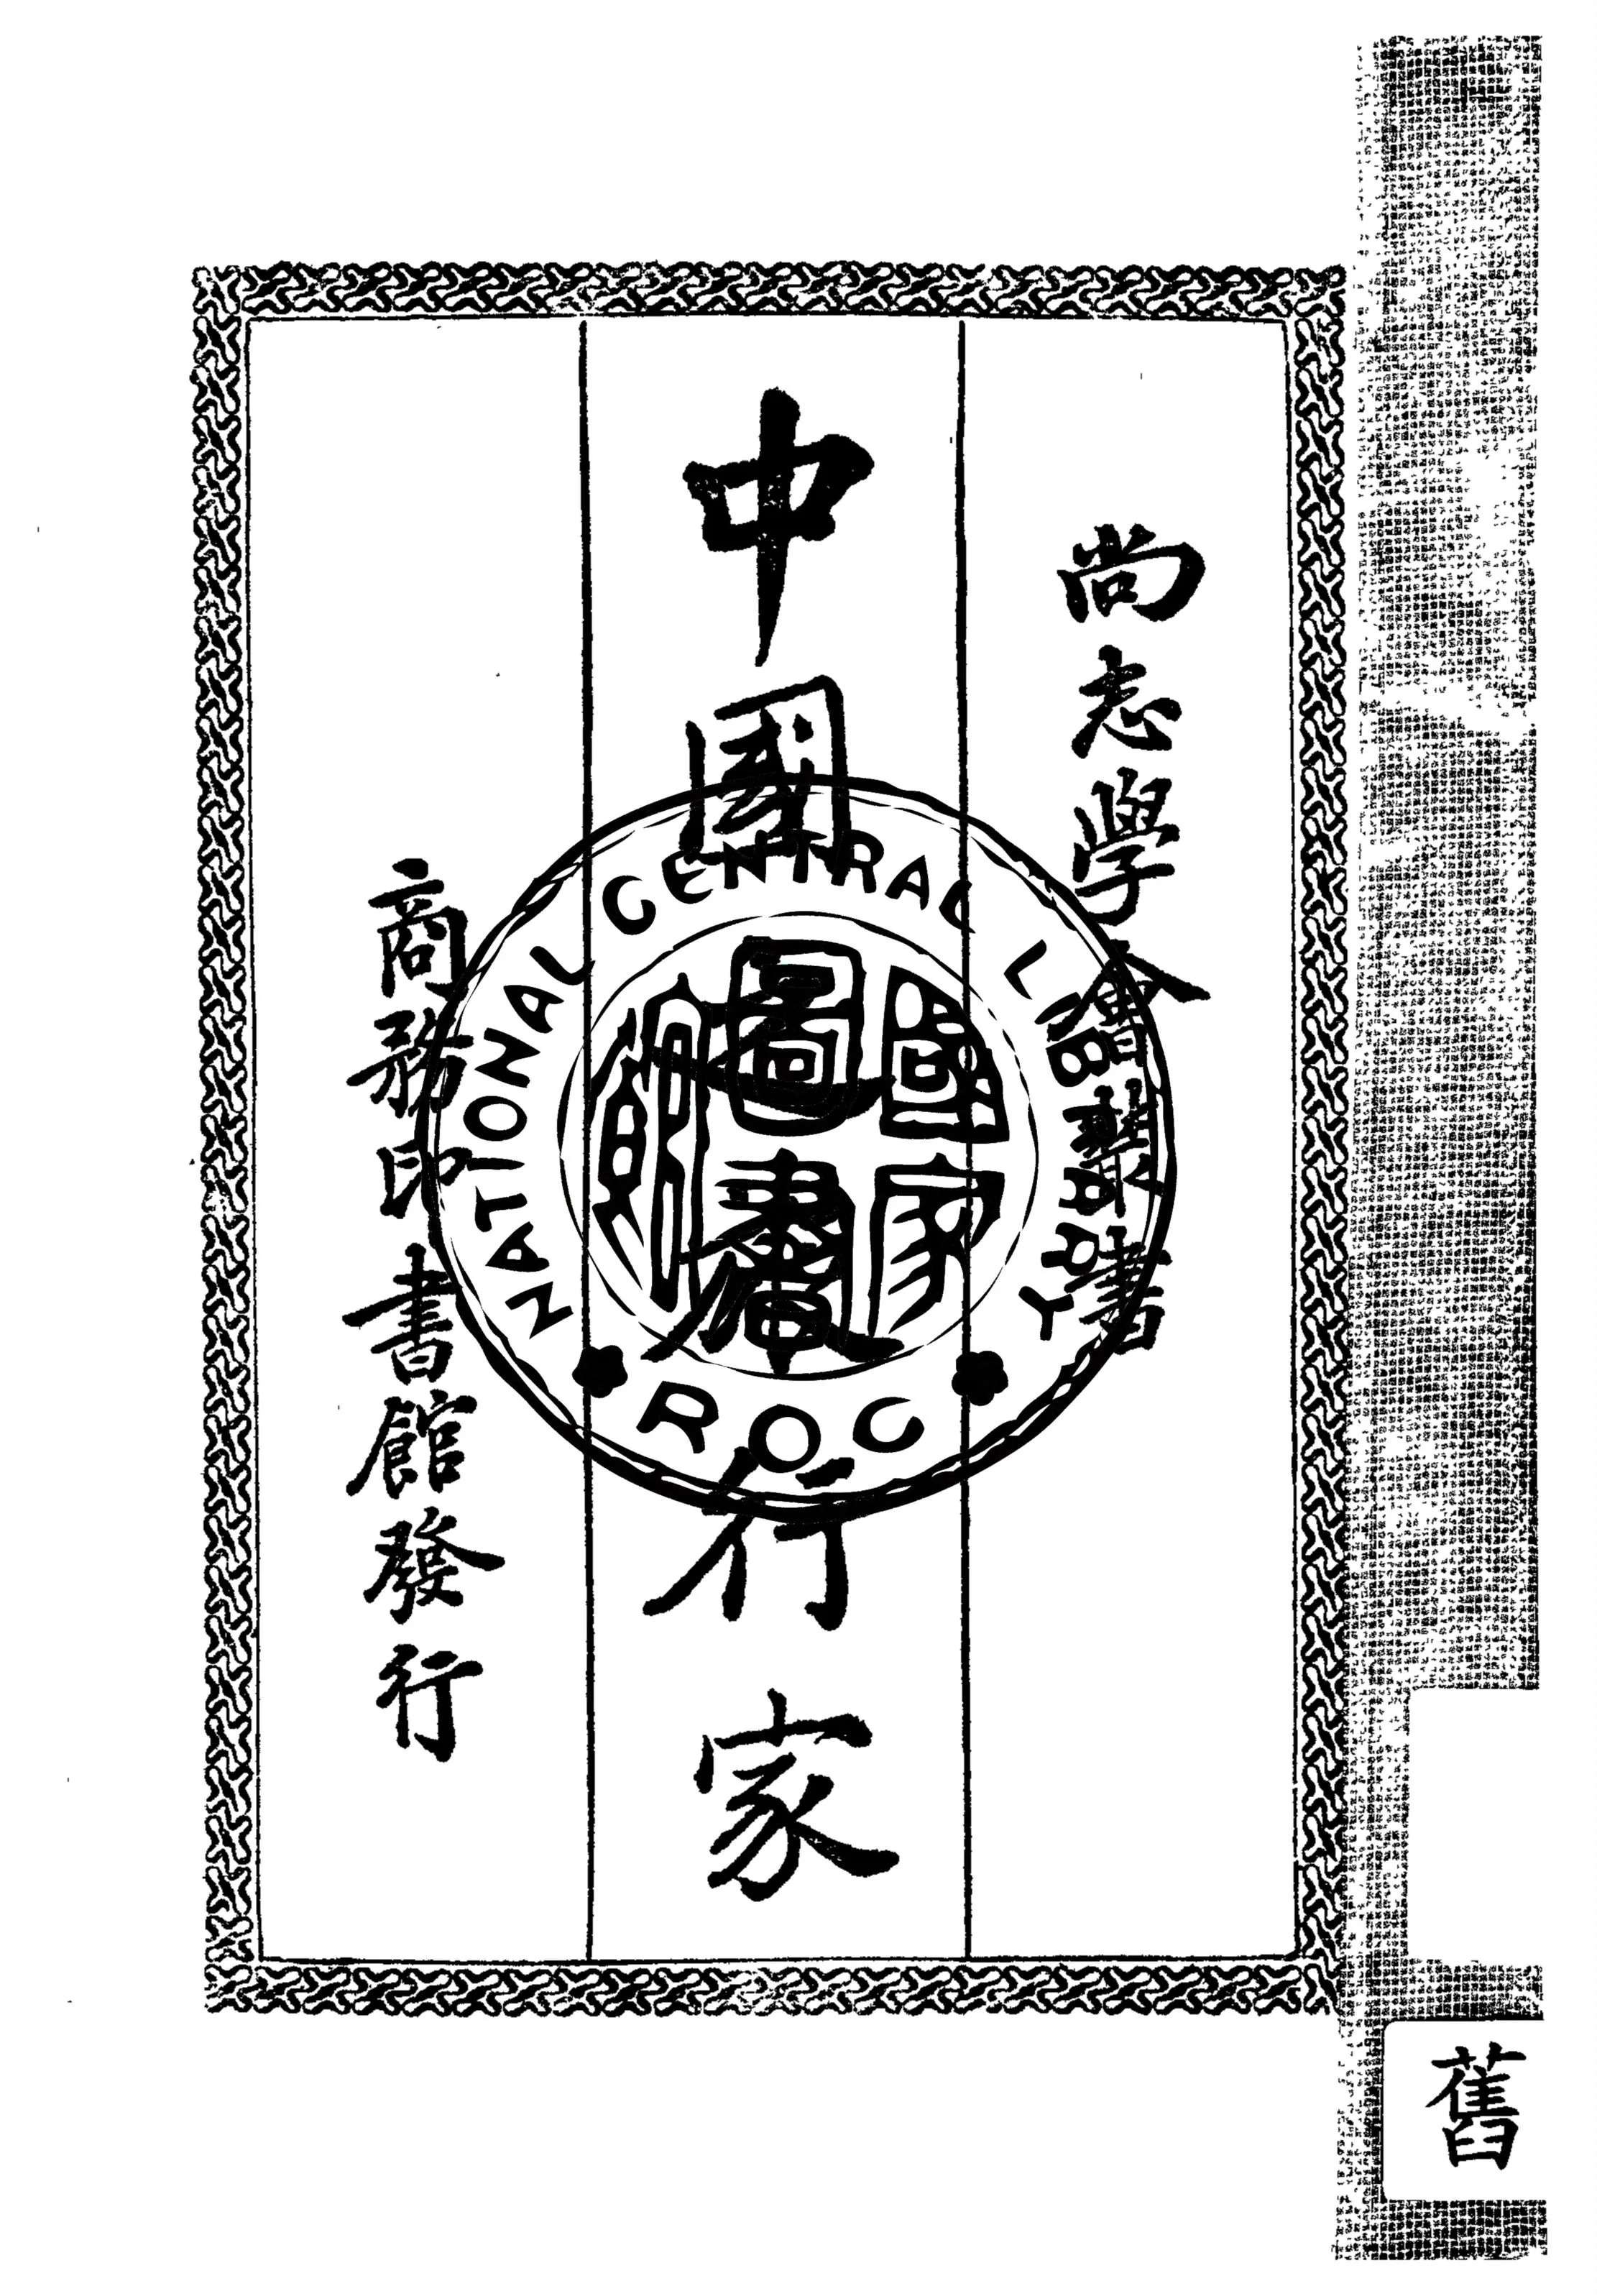 尚志學會叢書
中國之旅行家
商務印書館發行
NATIONAL CENTRAL LIBRARY
國家
圖書
館
ROC
舊